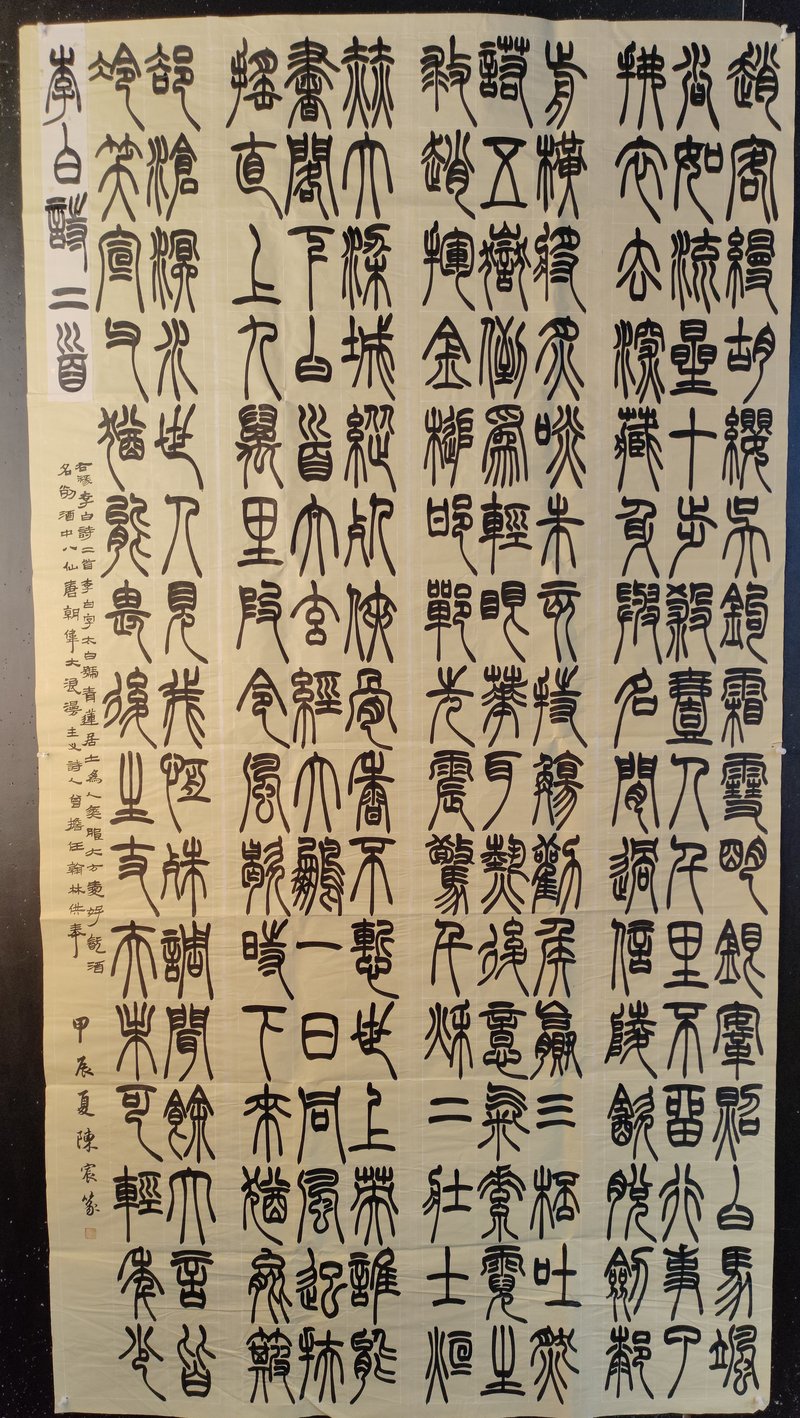 趙客縵胡纓吳鉤霜雪明銀鞍照白馬颯
沓如流星十步殺壹人千里不留行事了
拂衣去深藏身與名閒過信陵飲脫劍膝
前橫將炙啖朱亥持觴勸侯嬴三杯吐然
諾五嶽倒為輕眼華耳熱後意氣素霓生
救趙揮金槌邯鄲先震驚千秋二壯士烜
赫大梁城縱死俠骨香不慚世上英誰能
書閣下白首太玄經大鵬一日同風起扶
搖直上九萬里假令風歇時下來猶能簸
卻滄溟水世人見我恆殊調聞餘大言皆
冷笑宣父猶能畏後生丈夫未可輕年少
李白詩二首
右錄李白詩二首李白字太白號青蓮居士為人爽朗大方愛好飲酒
名列酒中八仙唐朝偉大浪漫主义詩人曾擔任翰林供奉
甲辰夏陳宸篆